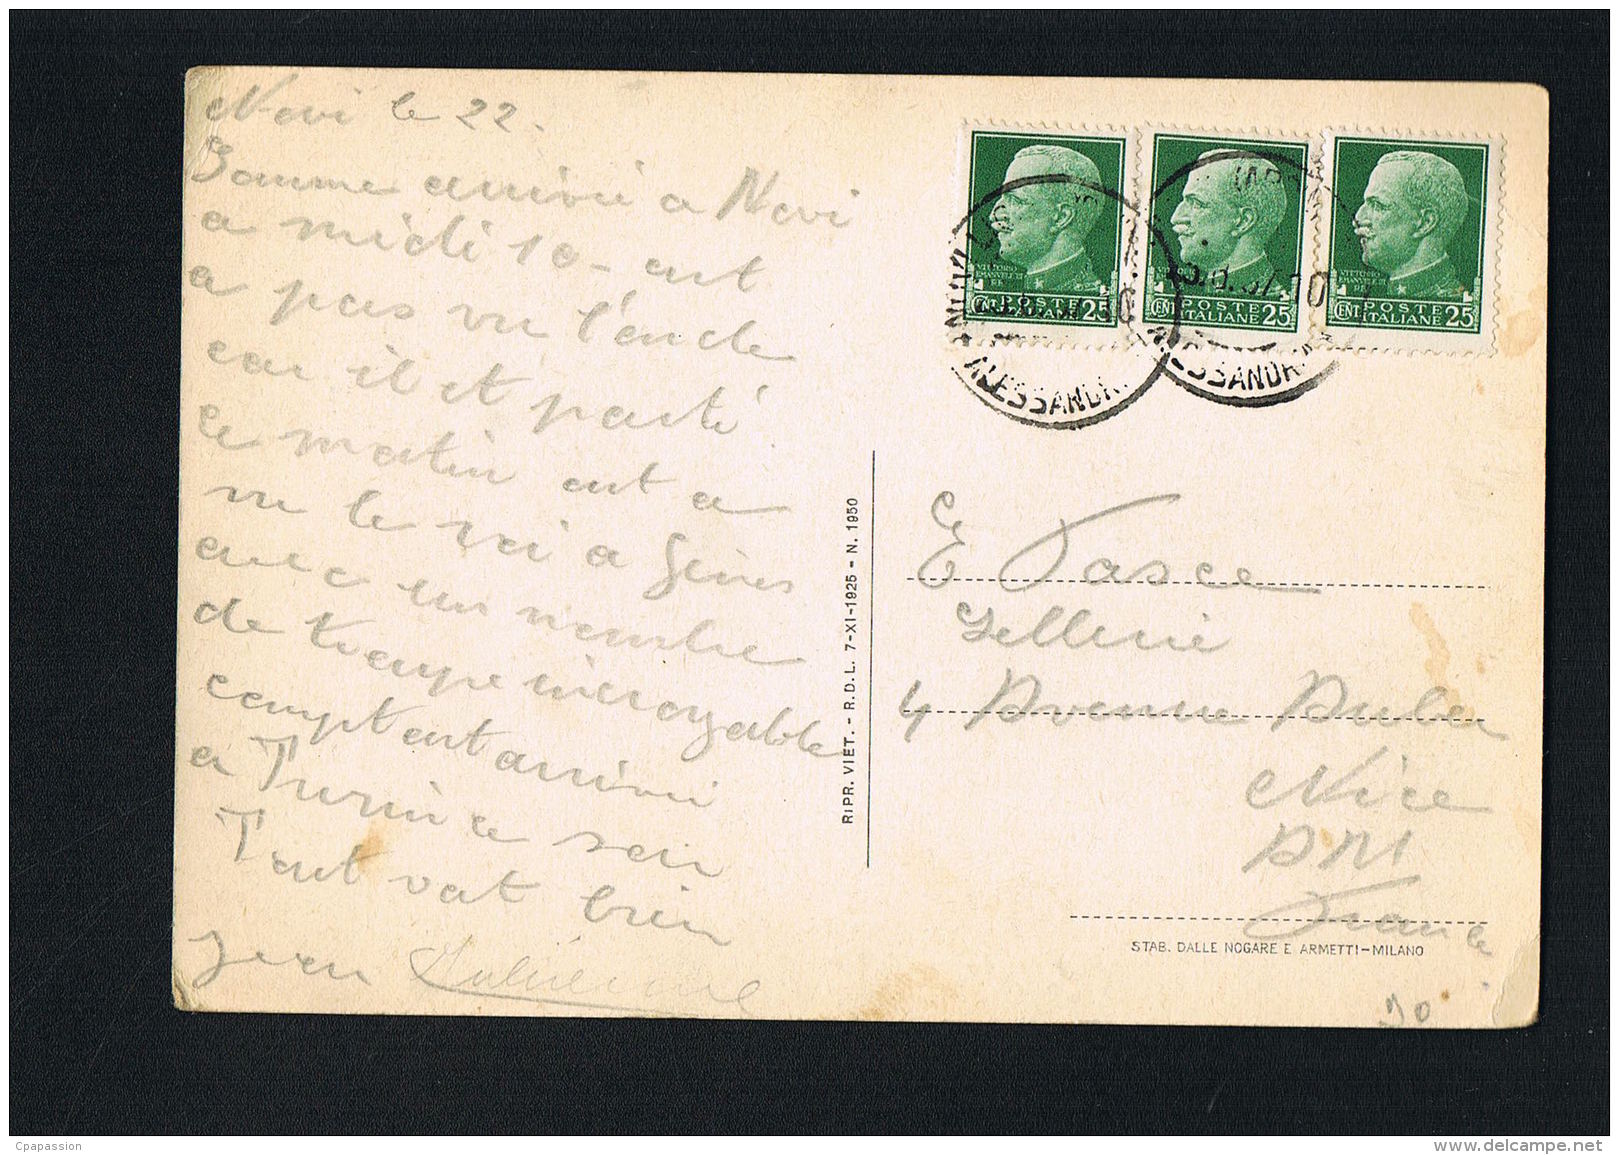 Novi le 22.
Somme arrivé a Novi
a midi 10 - ont
a pas vu l'oncle
car il et parti
ce matin ont a
vu le roi a Gênes
avec un nombre
de troupe incroyable
comptont arrivé
a Turin ce soir
Tout vat bien
Jean
VITTORIO EMANUELE III RE
POSTE ITALIANE CENT. 25
POSTE ITALIANE CENT. 25
VITTORIO EMANUELE III
POSTE ITALIANE CENT. 25
ALESSANDR
ESSANDR
RIPR. VIET. - R.D.L. 7-XI-1925 - N. 1950
E Pasce
Sellerie
4 Avenue
Nice
A M
France
STAB. DALLE NOGARE E ARMETTI-MILANO
Cpapassion
www.delcampe.net